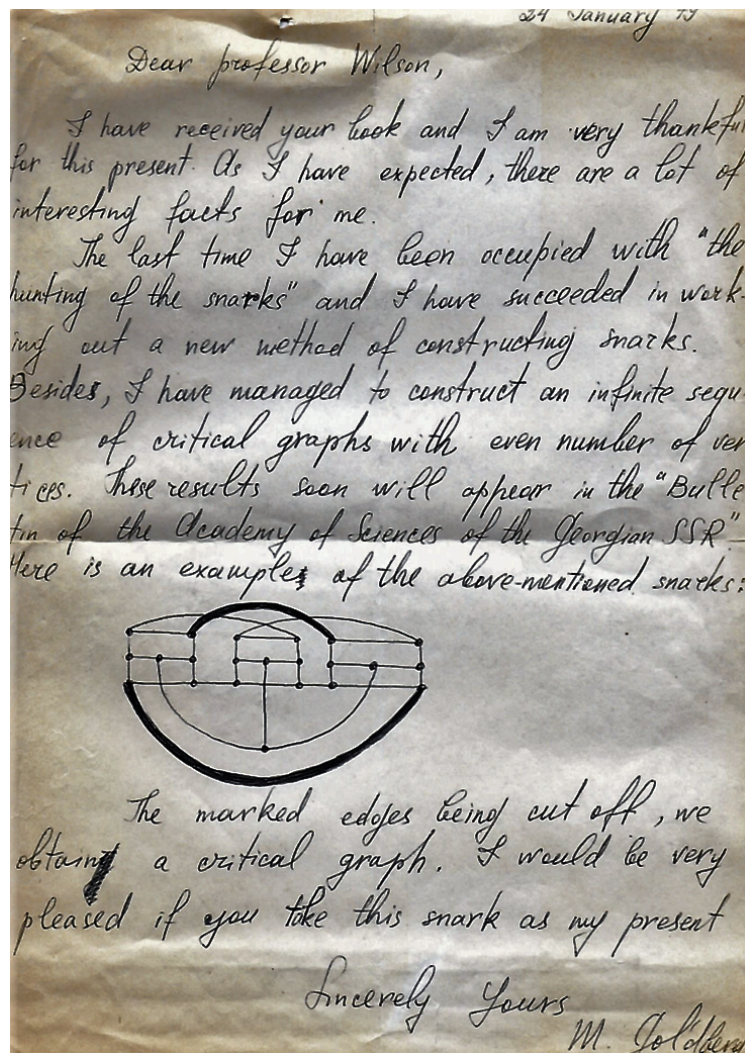 24 January 79
Dear professor Wilson,
I have received your book and I am very thankful
for this present. As I have expected, there are a lot of
interesting facts for me.
The last time I have been occupied with "the
hunting of the snarks" and I have succeeded in work-
ing out a new method of constructing snarks.
Besides, I have managed to construct an infinite sequ
ence of critical graphs with even number of ver
tices. These results soon will appear in the "Bulle
tin of the Academy of Sciences of the Georgian SSR".
Here is an example of the above-mentioned snarks:
The marked edges being cut off, we
obtain a critical graph. I would be very
pleased if you take this snark as my present
Sincerely Yours
M. Goldberg